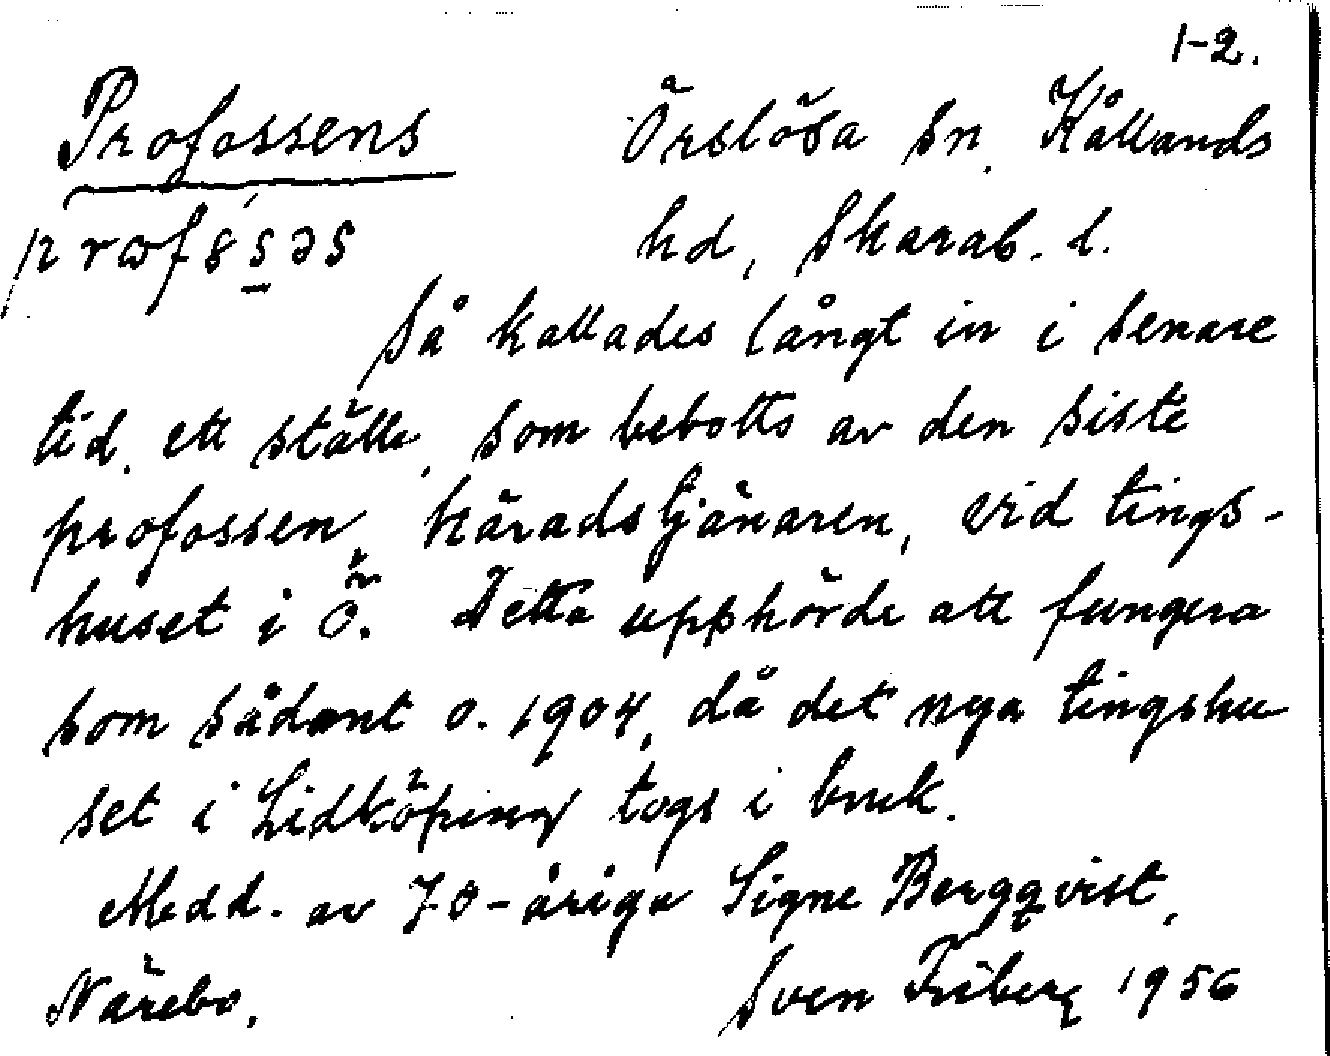 1-2.
Profossens Örslösa sn. Kållands
prɷfósəs hd, Skarab. l.
Så kallades långt in i senare
tid, ett ställe, som bebotts av den siste
profossen, häradstjänaren, vid tings-
huset i Ö. Detta upphörde att fungera
som sådant o. 1904, då det nya tingshu
set i Lidköping togs i bruk.
Medd. av 70-åriga Signe Bergqvist,
Närebo. Sven Friberg 1956